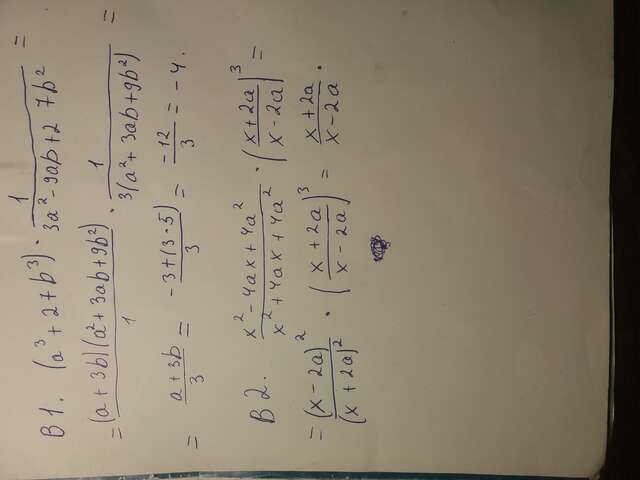 В1. (a³ + 27b³) · 1/(3a² - 9ab + 27b²) =
= (a + 3b)(a² + 3ab + 9b²)/1 · 1/(3(a² + 3ab + 9b²)) =
= (a + 3b)/3 = (-3 + (3 · 5))/3 = -12/3 = -4.
В2. (x² - 4ax + 4a²)/(x² + 4ax + 4a²) · ((x + 2a)/(x - 2a))³ =
= (x - 2a)²/(x + 2a)² · ((x + 2a)/(x - 2a))³ = (x + 2a)/(x - 2a).